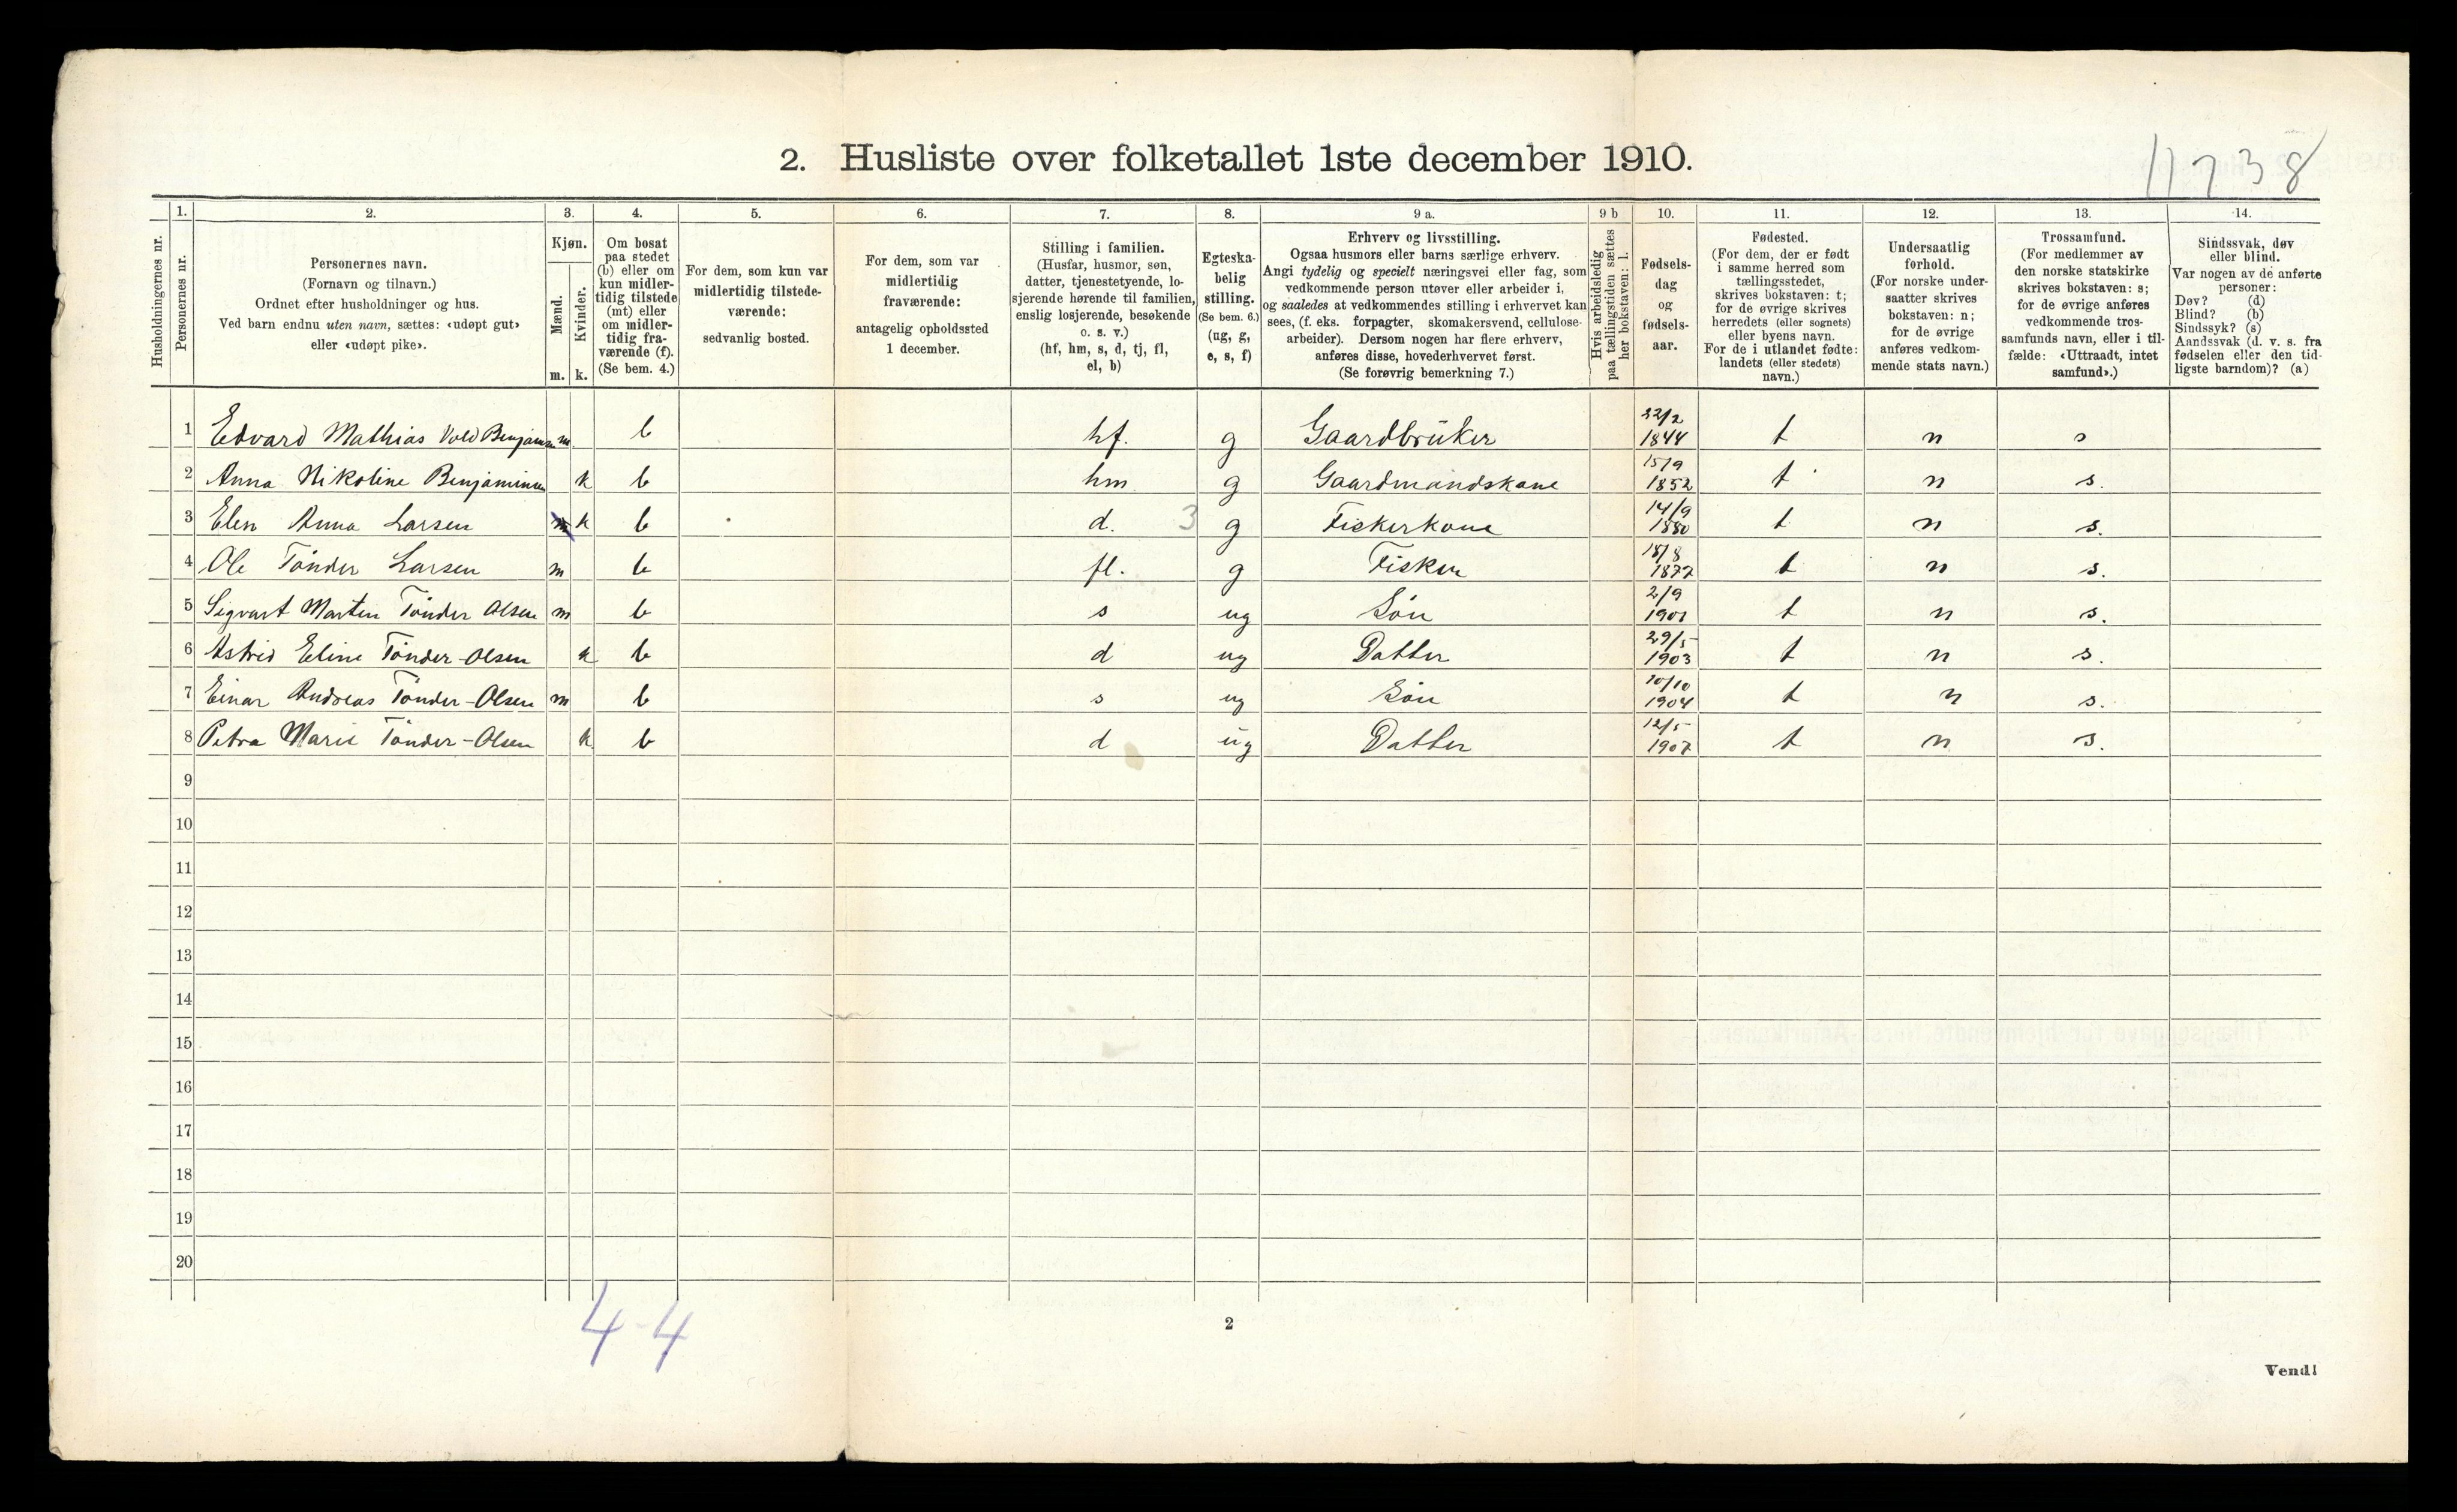 11738
2. Husliste over folketallet 1ste december 1910.
Husholdningernes nr.
1.
Personernes nr.
2.
Personernes navn.
(Fornavn og tilnavn.)
Ordnet efter husholdninger og hus.
Ved barn endnu uten navn, sættes: «udøpt gut»
eller «udøpt pike».
3.
Kjøn.
Mænd.
Kvinder.
m. k.
4.
Om bosat
paa stedet
(b) eller om
kun midler-
tidig tilstede
(mt) eller
om midler-
tidig fra-
værende (f).
(Se bem. 4.)
5.
For dem, som kun var
midlertidig tilstede-
værende:
sedvanlig bosted.
6.
For dem, som var
midlertidig
fraværende:
antagelig opholdssted
1 december.
7.
Stilling i familien.
(Husfar, husmor, søn,
datter, tjenestetyende, lo-
sjerende hørende til familien,
enslig losjerende, besøkende
o. s. v.)
(hf, hm, s, d, tj, fl,
el, b)
8.
Egteska-
belig
stilling.
(Se bem. 6.)
(ug, g,
e, s, f)
9 a.
Erhverv og livsstilling.
Ogsaa husmors eller barns særlige erhverv.
Angi tydelig og specielt næringsvei eller fag, som
vedkommende person utøver eller arbeider i,
og saaledes at vedkommendes stilling i erhvervet kan
sees, (f. eks. forpagter, skomakersvend, cellulose-
arbeider). Dersom nogen har flere erhverv,
anføres disse, hovederhvervet først.
(Se forøvrig bemerkning 7.)
9 b
Hvis arbeidsledig
paa tællingstiden sættes
her bokstaven: l.
10.
Fødsels-
dag
og
fødsels-
aar.
11.
Fødested.
(For dem, der er født
i samme herred som
tællingsstedet,
skrives bokstaven: t;
for de øvrige skrives
herredets (eller sognets)
eller byens navn.
For de i utlandet fødte:
landets (eller stedets)
navn.)
12.
Undersaatlig
forhold.
(For norske under-
saatter skrives
bokstaven: n;
for de øvrige
anføres vedkom-
mende stats navn.)
13.
Trossamfund.
(For medlemmer av
den norske statskirke
skrives bokstaven: s;
for de øvrige anføres
vedkommende tros-
samfunds navn, eller i til-
fælde: «Uttraadt, intet
samfund».)
14.
Sindssvak, døv
eller blind.
Var nogen av de anførte
personer:
Døv? (d)
Blind? (b)
Sindssyk? (s)
Aandssvak (d. v. s. fra
fødselen eller den tid-
ligste barndom)? (a)
1 Edvard Mathias Vold Benjamsen m. b hf. g Gaardbrüker 22/2 1844 t n s
2 Anna Nikoline Benjaminsen k b hm g Gaardmandskone 15/9 1852 t n s.
3 Elen Anna Larsen m k b d. 3 g Fiskerkone 14/9 1880 t n s.
4 Ole Tönder Larsen m b fl. g Fisker 18/8 1877 t n s.
5 Sigvart Marten Tönder Olsen m b s ug Sön 2/9 1901 t n s.
6 Astrid Eline Tönder-Olsen k b d ug Datter 29/5 1903 t n s.
7 Einar Andreas Tönder-Olsen m b s ug Sön 10/10 1904 t n s.
8 Petra Marie Tönder-Olsen k b d ug Datter 12/5 1907 t n s.
9
10
11
12
13
14
15
16
17
18
19
20
4-4
2
Vend!